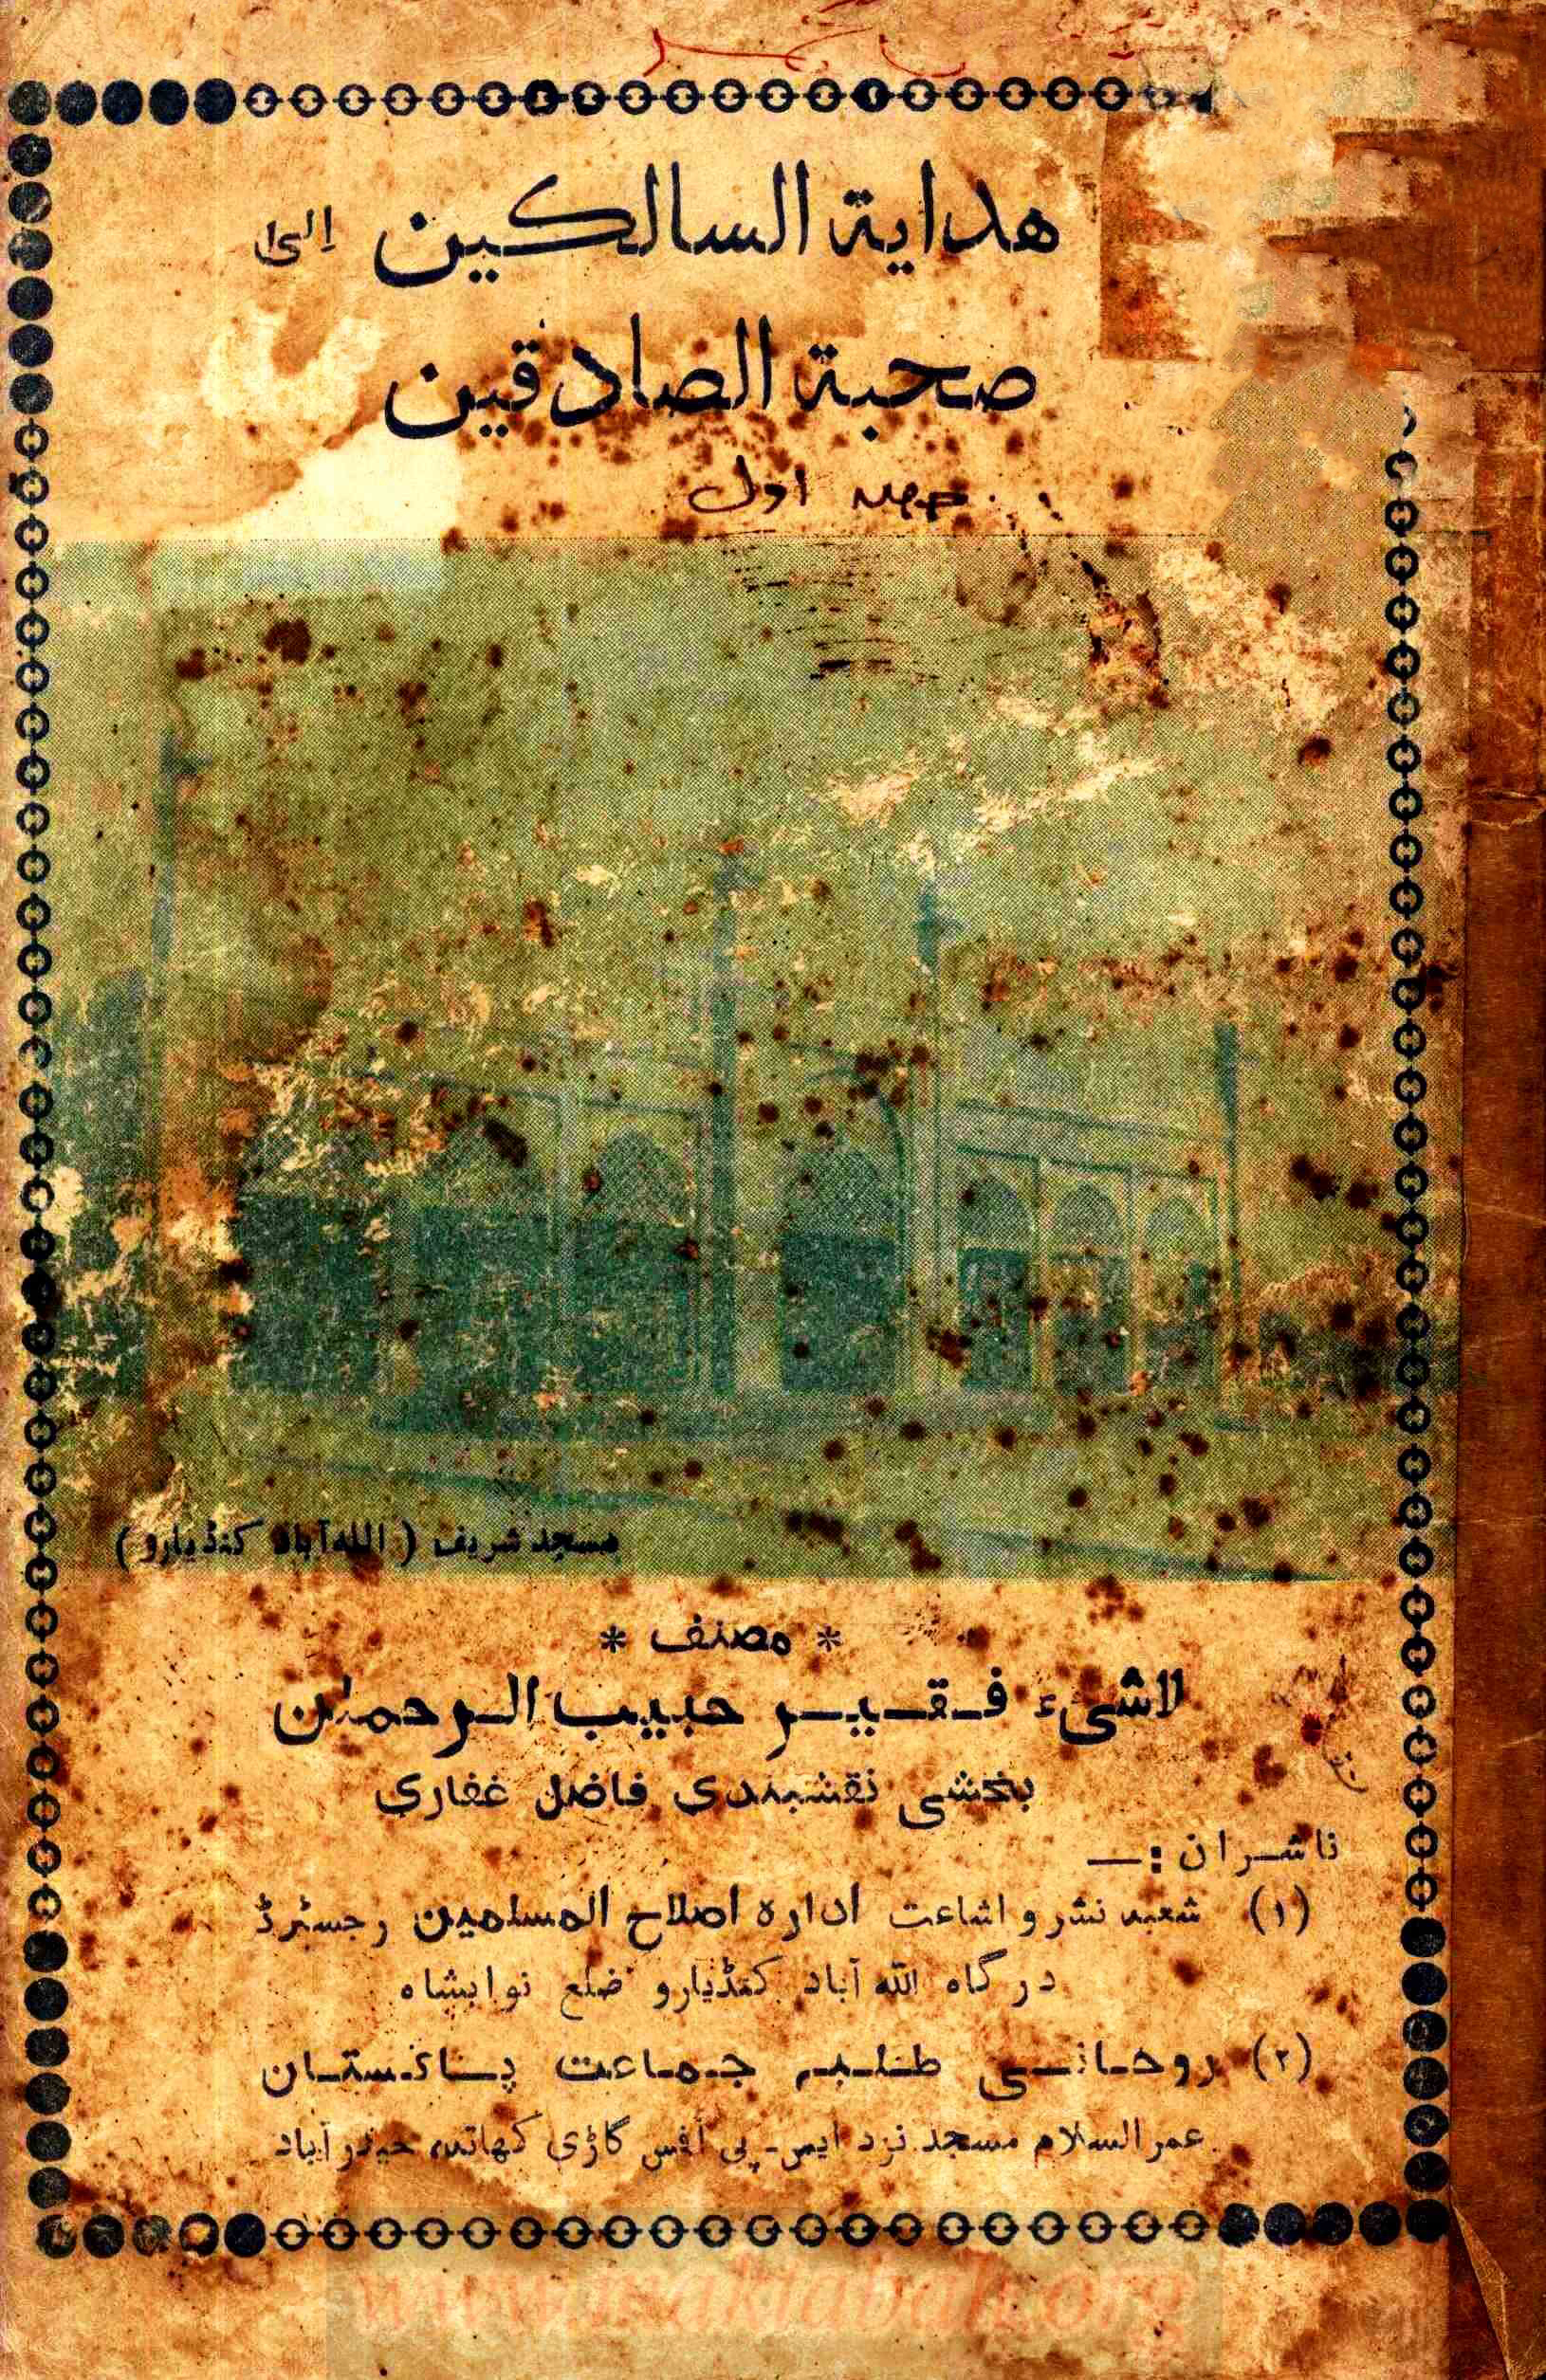 هداية السالكين الیٰ
صحبة الصادقين
حصہ اول
مسجد شریف ( اللہ آباد کنڈیارو )
* مصنف *
لاشیء فقیر حبیب الرحمان
بخشی نقشبندی فاضل غفاری
ناشران :—
(۱) شعبہ نشر و اشاعت ادارہ اصلاح المسلمین رجسٹرڈ
درگاہ اللہ آباد کنڈیارو ضلع نوابشاہ
(۲) روحانی طلبہ جماعت پاکستان
عمر السلام مسجد نزد ایس - پی آفس گاڑی کھاتہ حیدرآباد
www.maktabah.org